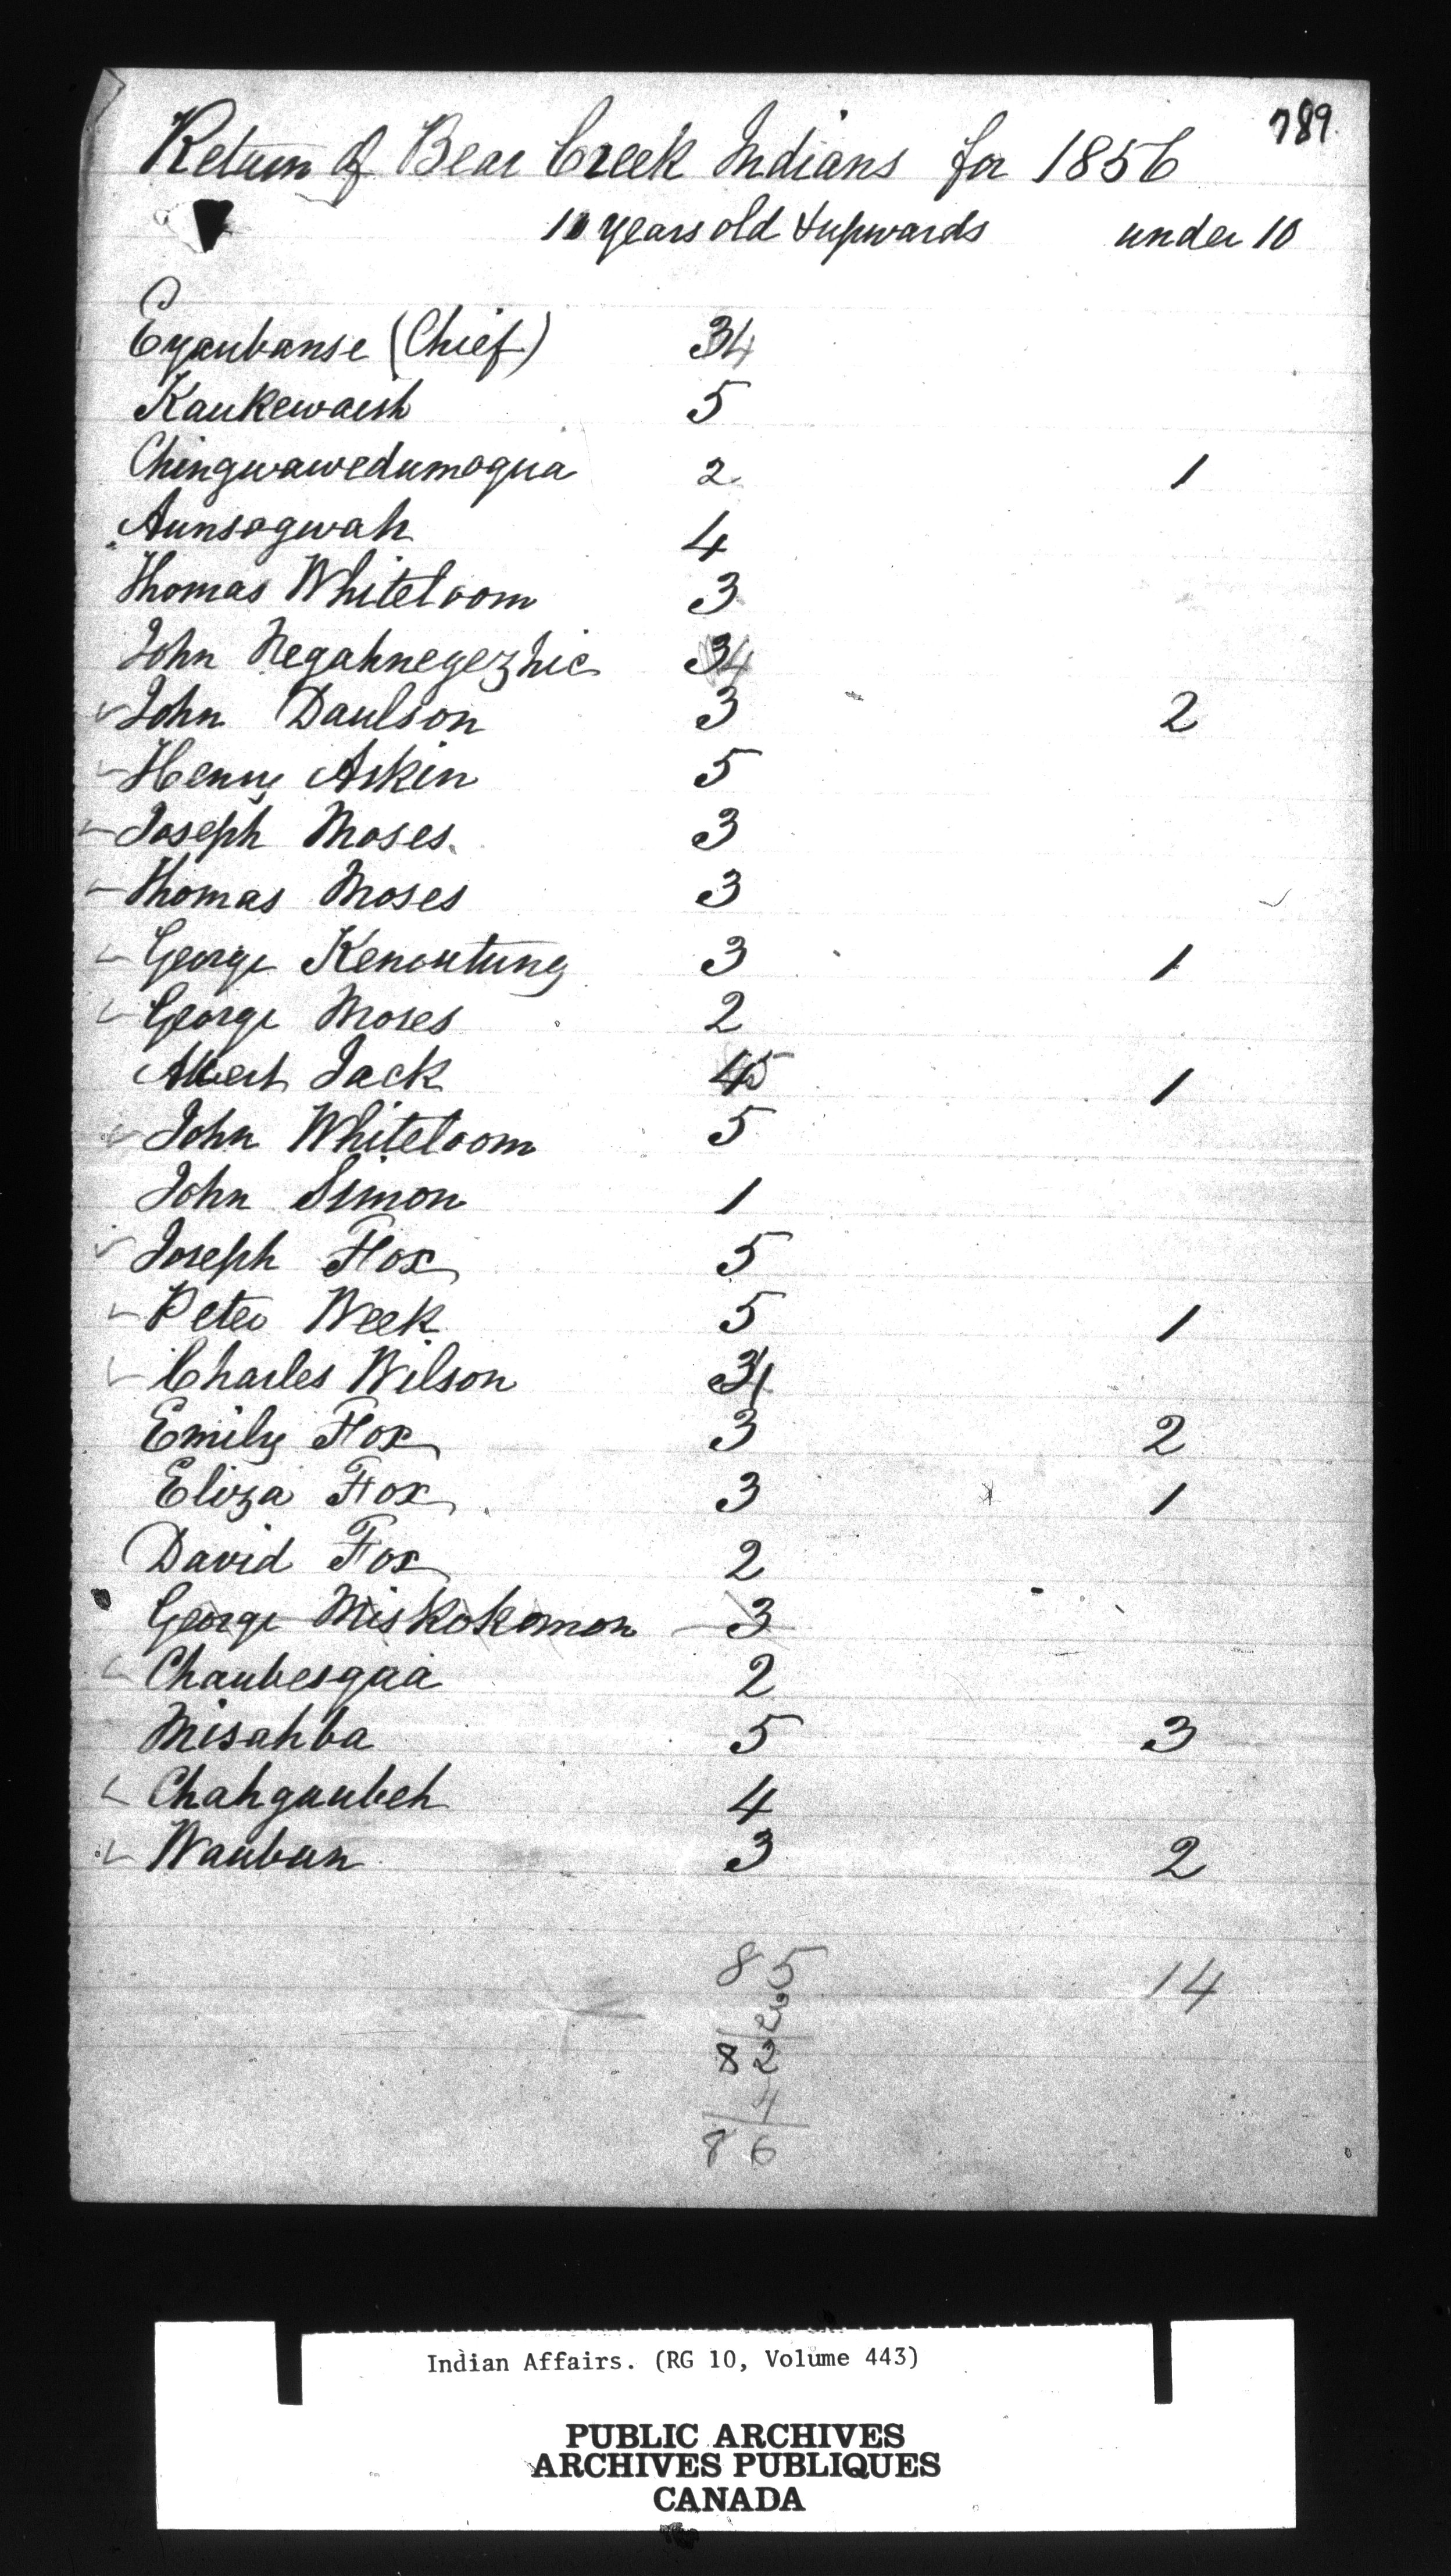 789
Return of Bear Creek Indians for 1856
10 years old & upwards under 10
Eyaubanse (Chief) 34
Kaukewaish 5
Chingwawedumoqua 2 1
Aunsogwah 4
Thomas Whiteloom 3
John Negahnegezhic 34
John Daulson 3 2
Henry Askin 5
Joseph Moses 3
Thomas Moses 3
George Kenoutung 3 1
George Moses 2
Albert Jack 45 1
John Whiteloom 5
John Simon 1
Joseph Fox 5
Peter Week 5 1
Charles Wilson 34
Emily Fox 3 2
Eliza Fox 3 1
David Fox 2
George Miskokomon 3
Chaubesqaa 2
Misahba 5 3
Chahgaubeh 4
Waubun 3 2
85 14
3
82
4
86
Indian Affairs. (RG 10, Volume 443)
PUBLIC ARCHIVES
ARCHIVES PUBLIQUES
CANADA